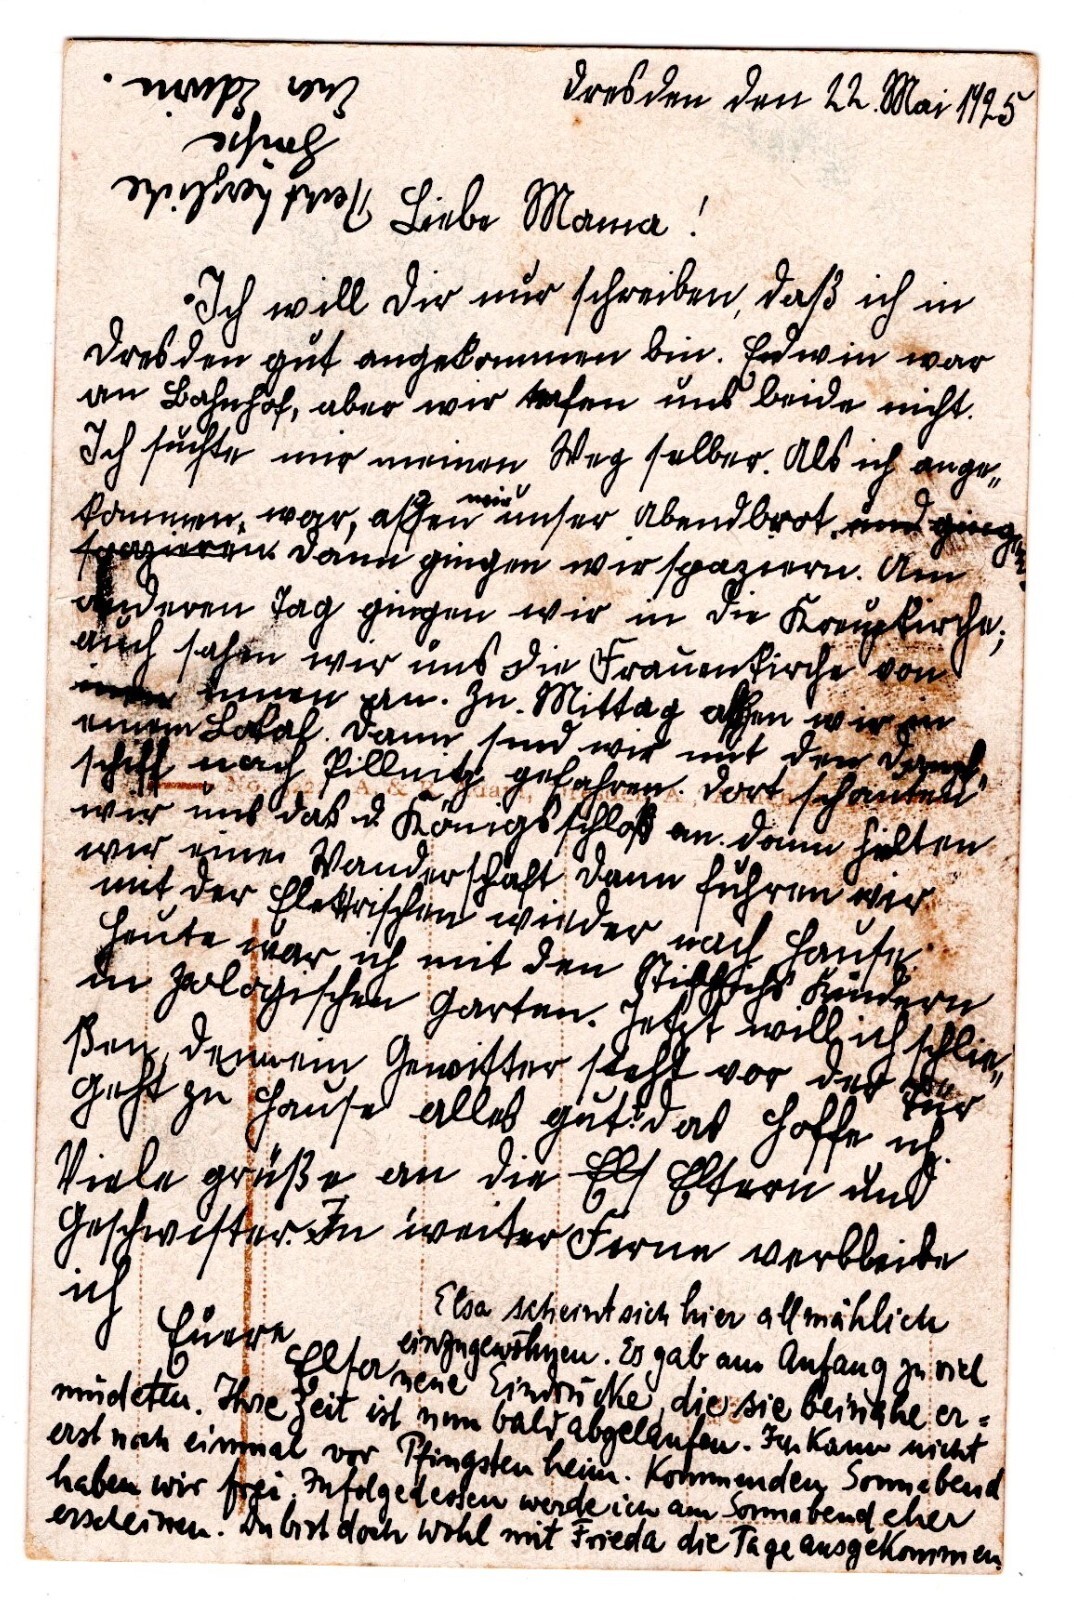 Dresden den 22. Mai 1925
Liebe Mama!
Ich will Dir nur schreiben, daß ich in
Dresden gut angekommen bin. Edwin war
an Bahnhof, aber wir trafen uns beide nicht.
Ich suchte mir meinen Weg selber. Als ich ange„
kommen, war, aßen wir unser Abendbrot. und gingen
spazieren. Dann gingen wir spaziern. Am
anderen Tag gingen wir in die Kreuzkirche;
auch sahen wir uns die Frauenkirche von
innen an. Zu Mittag aßen wir in
einem Lokal. Dann sind wir mit den Dampf„
schiff nach Pillnitz gefahren. Dort schauten
wir uns das d. Königsschloß an. Dann hilten
wir eine Wanderschaft Dann fuhren wir
mit der Elektrischen wieder nach Hause.
Heute war ich mit den Kindern
in Zoologischen Garten. Jetzt will ich schlie„
ßen, denn ein Gewitter steht vor der Tür
Geht zu Hause alles gut? das hoffe ich.
Viele grüße an die Els Eltern und
Geschwister. In weiter Ferne verbleibe
ich
Euere
Elsa
Elsa scheint sich hier allmählich
einzugewöhnen. Es gab am Anfang zu viel
neue Eindrücke, die sie beinahe er=
müdeten. Ihre Zeit ist nun bald abgelaufen. Ich kann nicht
erst noch einmal vor Pfingsten heim. Kommenden Sonnabend
haben wir frei. Infolgedessen werde ich am Sonnabend eher
erscheinen. Du bist doch wohl mit Frieda die Tage ausgekommen.
Recht herzliche
Grüße
Euer Edwin.